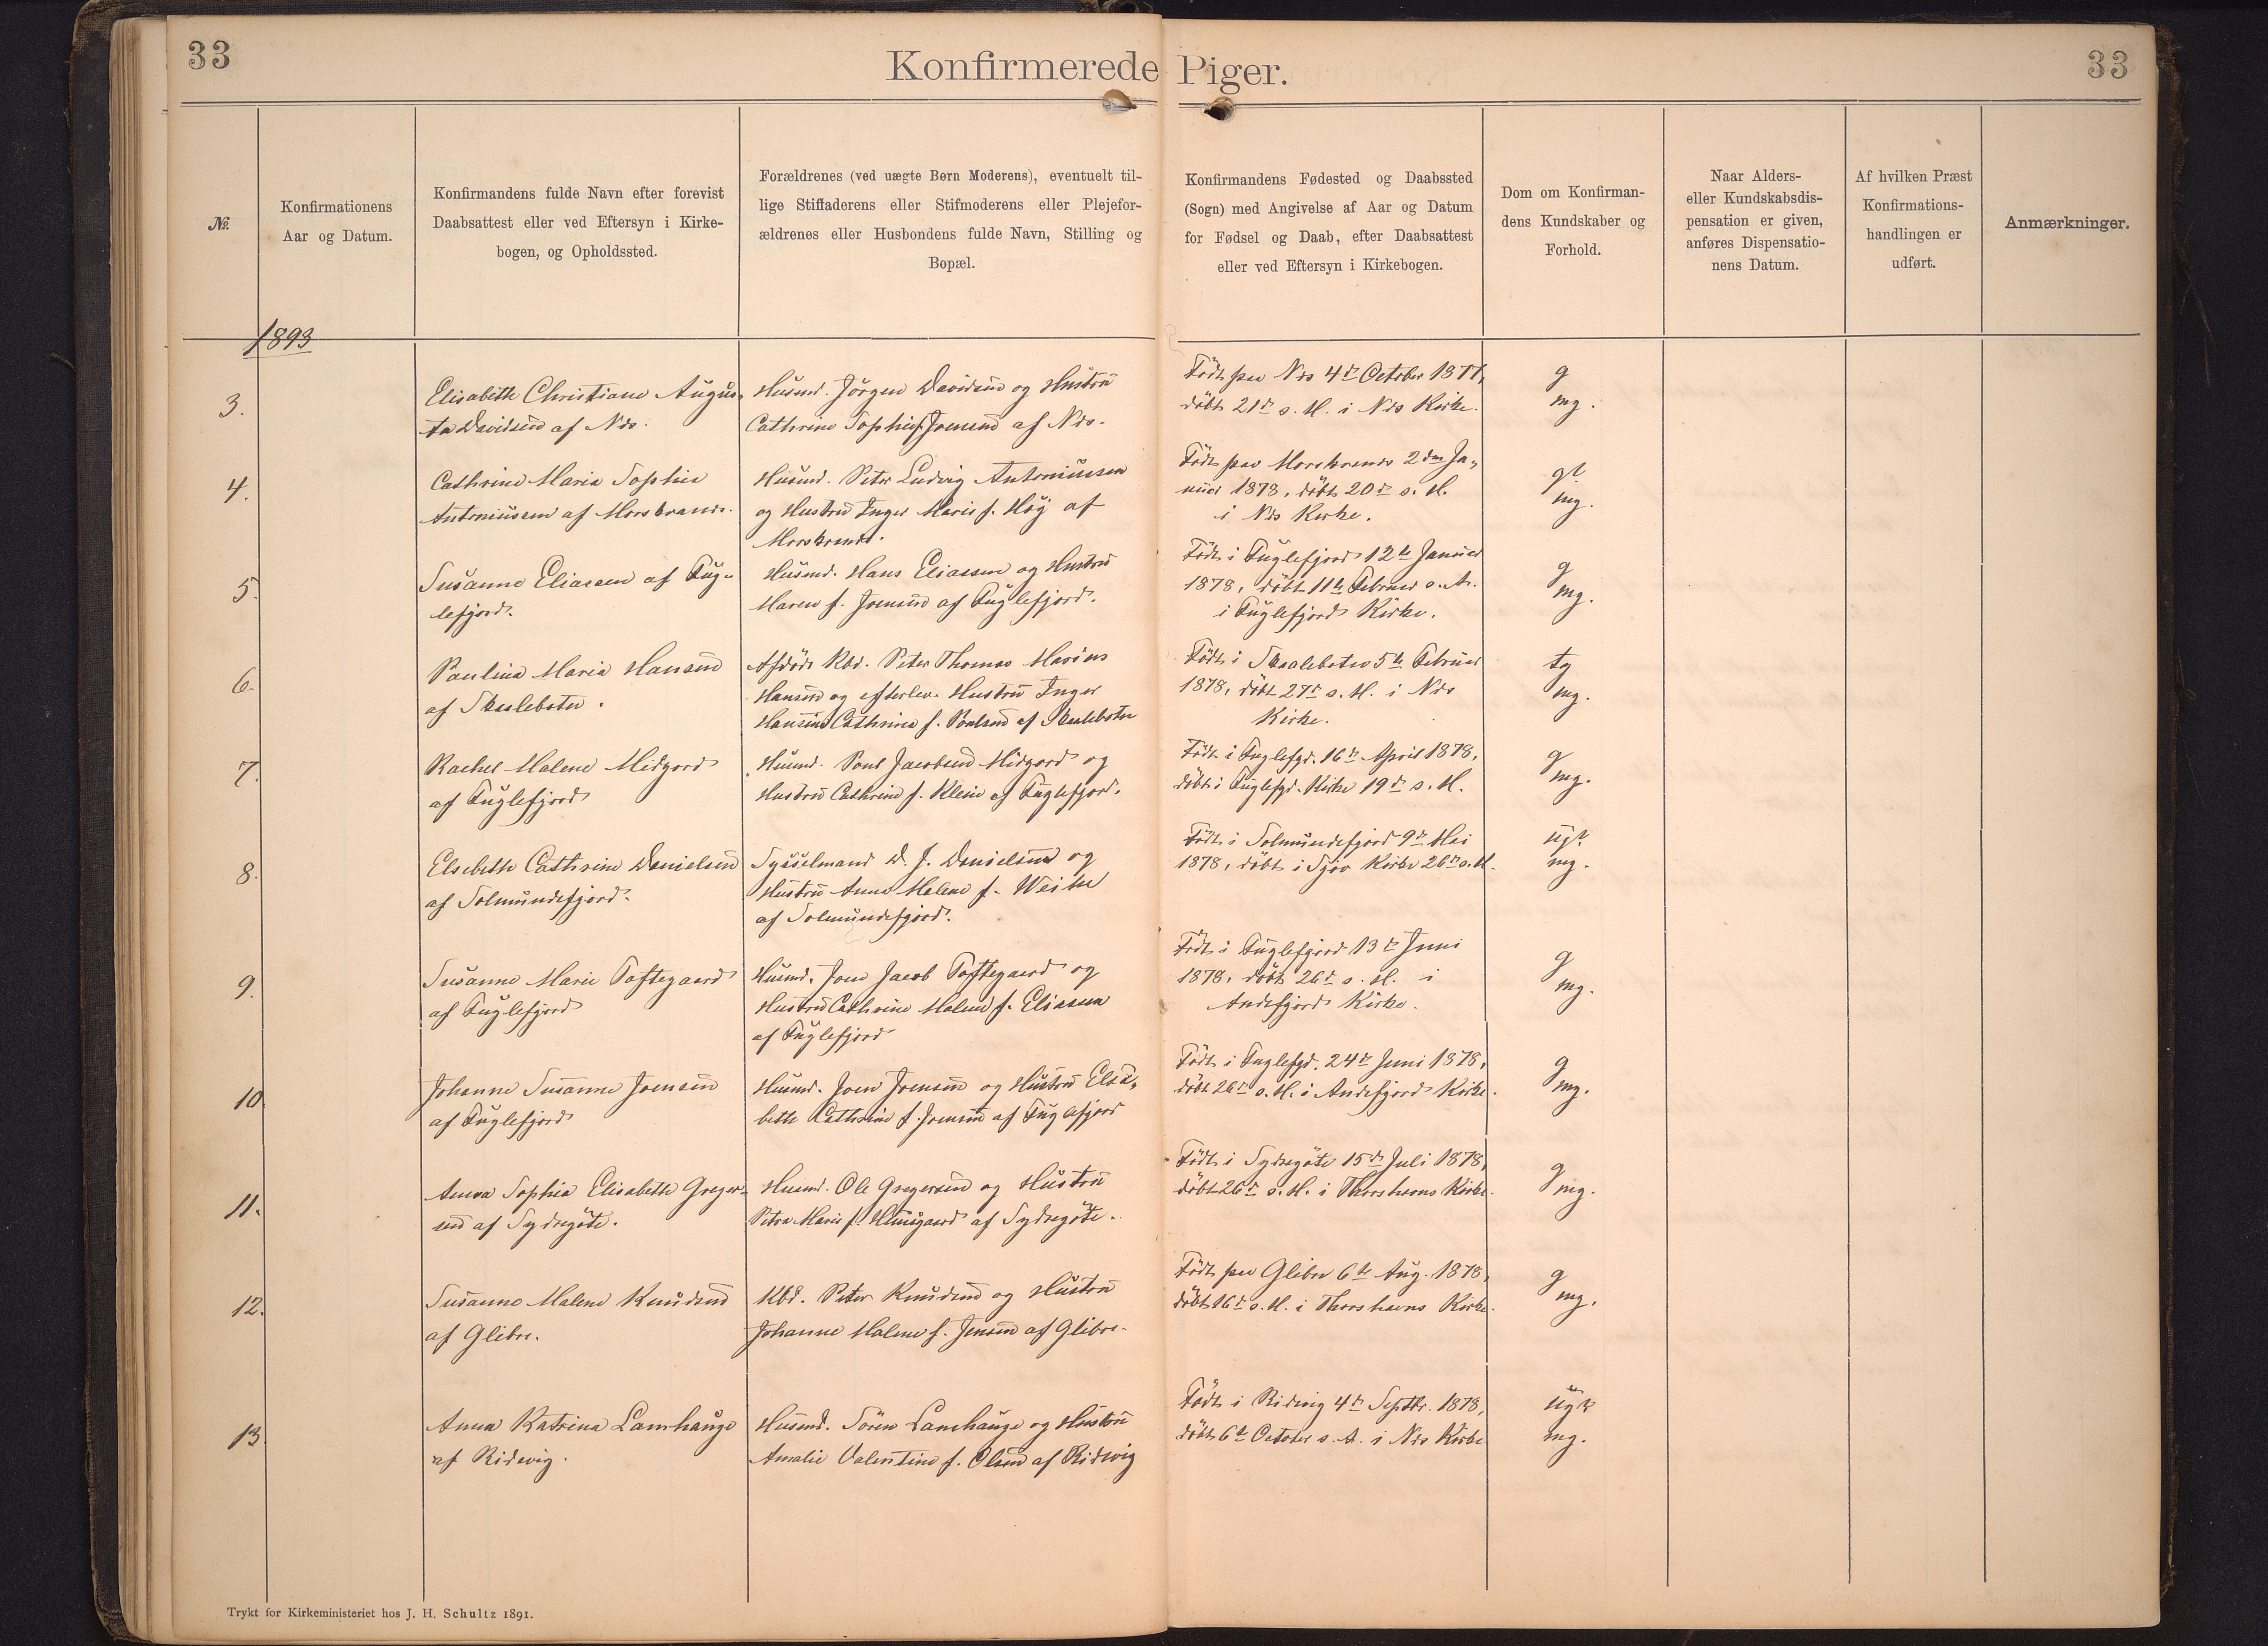 33
Konfirmerede Piger.
33
№.
Konfirmationens
Aar og Datum.
Konfirmandens fulde Navn efter forevist
Daabsattest eller ved Eftersyn i Kirke-
bogen, og Opholdssted.
Forældrenes (ved uægte Børn Moderens), eventuelt til-
lige Stiffaderens eller Stifmoderens eller Plejefor-
ældrenes eller Husbondens fulde Navn, Stilling og
Bopæl.
Konfirmandens Fødested og Daabssted
(Sogn) med Angivelse af Aar og Datum
for Fødsel og Daab, efter Daabsattest
eller ved Eftersyn i Kirkebogen.
Dom om Konfirman-
dens Kundskaber og
Forhold.
Naar Alders-
eller Kundskabsdis-
pensation er given,
anføres Dispensatio-
nens Datum.
Af hvilken Præst
Konfirmations-
handlingen er
udført.
Anmærkninger.
1893
3.
Elisabeth Christiane Augus-
ta Davidsen af Næs.
Husmd. Jørgen Davidsen og Hustru
Cathrine Sophie f. Joensen af Næs.
Født paa Næs 4de October 1877,
døbt 21de s. M. i Næs Kirke.
g
mg.
4.
Cathrine Maria Sophie
Antoniussen af Morskranes.
Husmd. Peter Ludvig Antoniussen
og Hustru Inger Marie f. Høj af
Morskranes.
Født paa Morskranes 2den Ja-
nuar 1878, døbt 20de s. M.
i Næs Kirke.
gt
mg.
5.
Susanne Eliassen af Fug-
lefjord.
Husmd. Hans Eliassen og Hustru
Maren f. Joensen af Fuglefjord.
Født i Fuglefjord 12te Januar
1878, døbt 11te Februar s. A.
i Fuglefjords Kirke.
g
mg.
6.
Paulina Maria Hansen
af Skaalebotn.
Afdøde Kbd. Peter Thomas Marius
Hansen og efterlev. Hustru Inger
Hansine Cathrine f. Poulsen af Skaalebotn
Født i Skaalebotn 5te Februar
1878, døbt 27de s. M. i Næs
Kirke.
tg
mg.
7.
Rachel Malene Midgord
af Fuglefjord
Husmd. Poul Jacobsen Midgord og
Hustru Cathrine f. Klein af Fuglefjord.
Født i Fuglefjd. 16de April 1878,
døbt i Fuglefjd. Kirke 19de s. M.
g
mg.
8.
Elsebeth Cathrine Danielsen
af Solmundefjord.
Sysselmand D. J. Danielsen og
Hustru Anna Malene f. Weihe
af Solmundefjord.
Født i Solmundefjord 9de Mai
1878, døbt i Sjov Kirke 26de s. M.
ug?
mg.
9.
Susanne Marie Toftegaard
af Fuglefjord
Husmd. Joen Jacob Toftegaard og
Hustru Cathrine Malene f. Eliassen
af Fuglefjord
Født i Fuglefjord 13de Juni
1878, døbt 26de s. M. i
Andefjords Kirke.
g
mg.
10
Johanne Susanne Joensen
af Fuglefjord
Husmd. Joen Joensen og Hustru Elsa-
beth Cathrine f. Joensen af Fuglefjord
Født i Fuglefjd. 24de Juni 1878,
døbt 26de s. M. i Andefjords Kirke.
g
mg.
11.
Anna Sophia Elisabeth Greger-
sen af Sydregøte.
Husmd. Ole Gregersen og Hustru
Petra Marie f. af Sydregøte.
Født i Sydregøte 15de Juli 1878,
døbt 26de s. M. i Thorshavns Kirke.
g
mg.
12.
Susanne Malene Knudsen
af Glibre.
Kbd. Peter Knudsen og Hustru
Johanne Malene f. Jensen af Glibre.
Født paa Glibre 6te Aug. 1878,
døbt 16de s. M. i Thorshavns Kirke.
g
mg.
13
Anna Katrina Lamhauge
af Ridevig.
Husmd. Sören Lamhauge og Hustru
Amalie Valentine f. Olsen af Ridevig
Født i Ridevig 4de Septbr. 1878,
døbt 6te October s. A. i Næs Kirke
ug?
mg.
Trykt for Kirkeministeriet hos J. H. Schultz 1891.